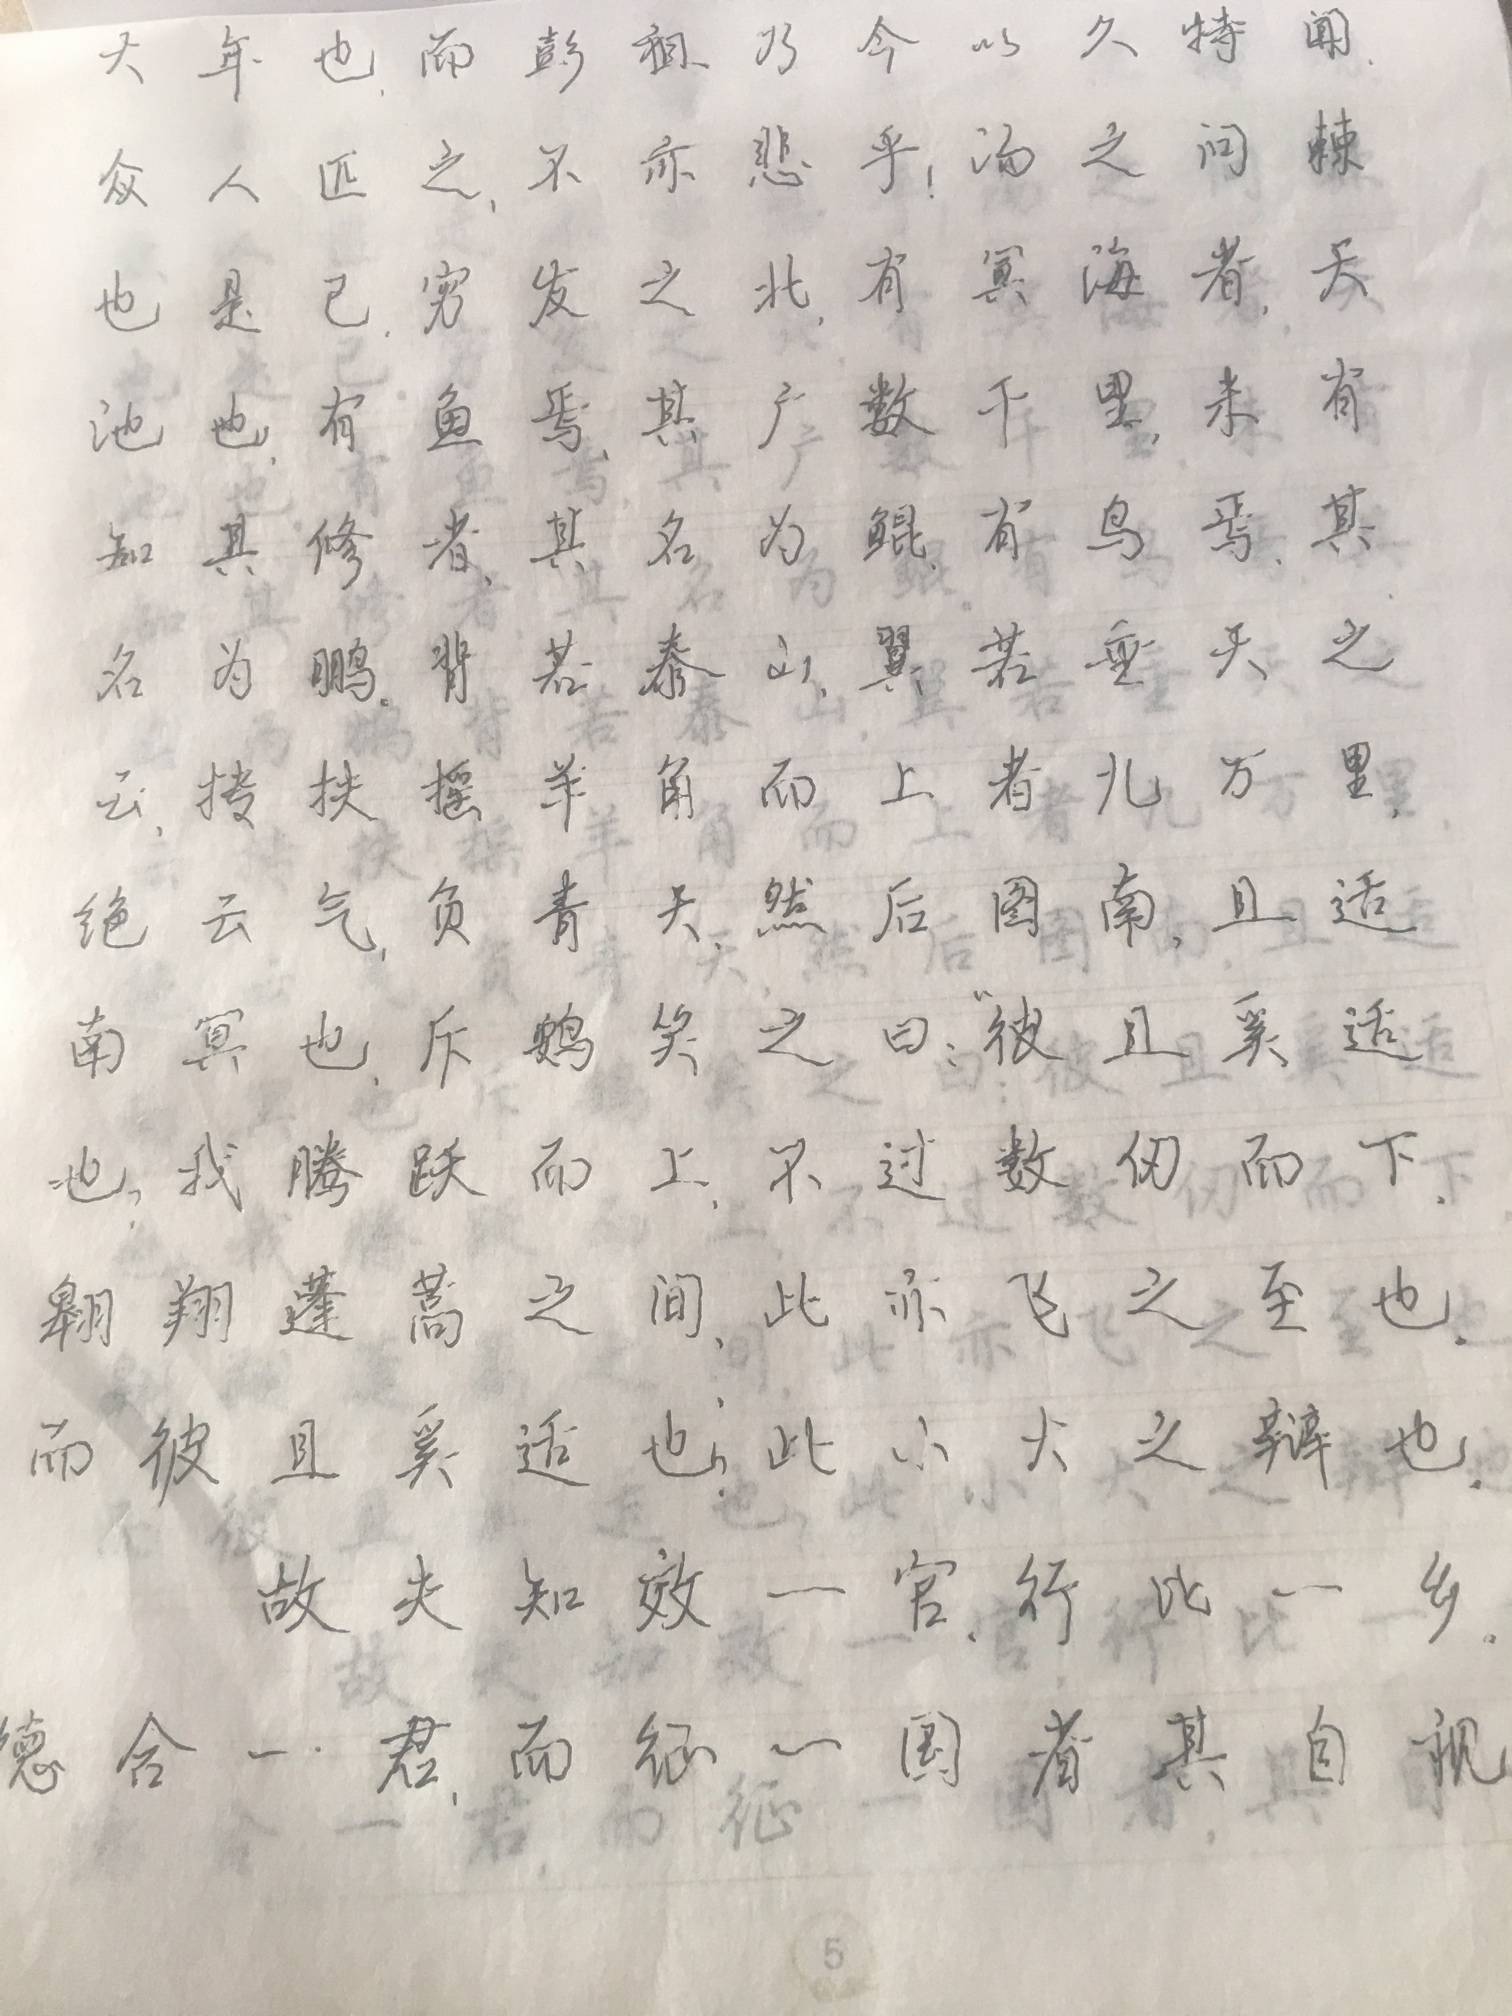 大年也,而彭祖乃今以久特闻.
众人匹之,不亦悲乎!汤之问棘
也是已.穷发之北,有冥海者,天
池也,有鱼焉,其广数千里,未有
知其修者,其名为鲲,有鸟焉,其
名为鹏.背若泰山,翼若垂天之
云,抟扶摇羊角而上者九万里,
绝云气,负青天,然后图南,且适
南冥也,斥鴳笑之曰:“彼且奚适
也?我腾跃而上,不过数仞而下.
翱翔蓬蒿之间,此亦飞之至也.
而彼且奚适也?此小大之辩也.
故夫知效一官,行比一乡.
德合一君,而征一国者其自视
5